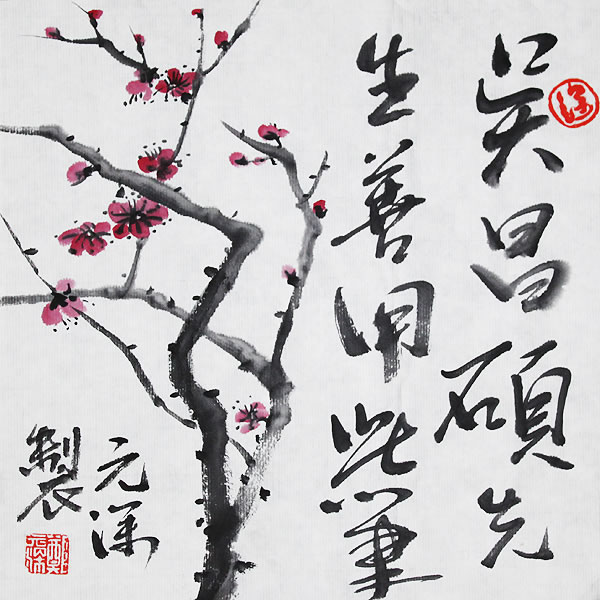 吳昌碩先
生善用此筆
元深
製